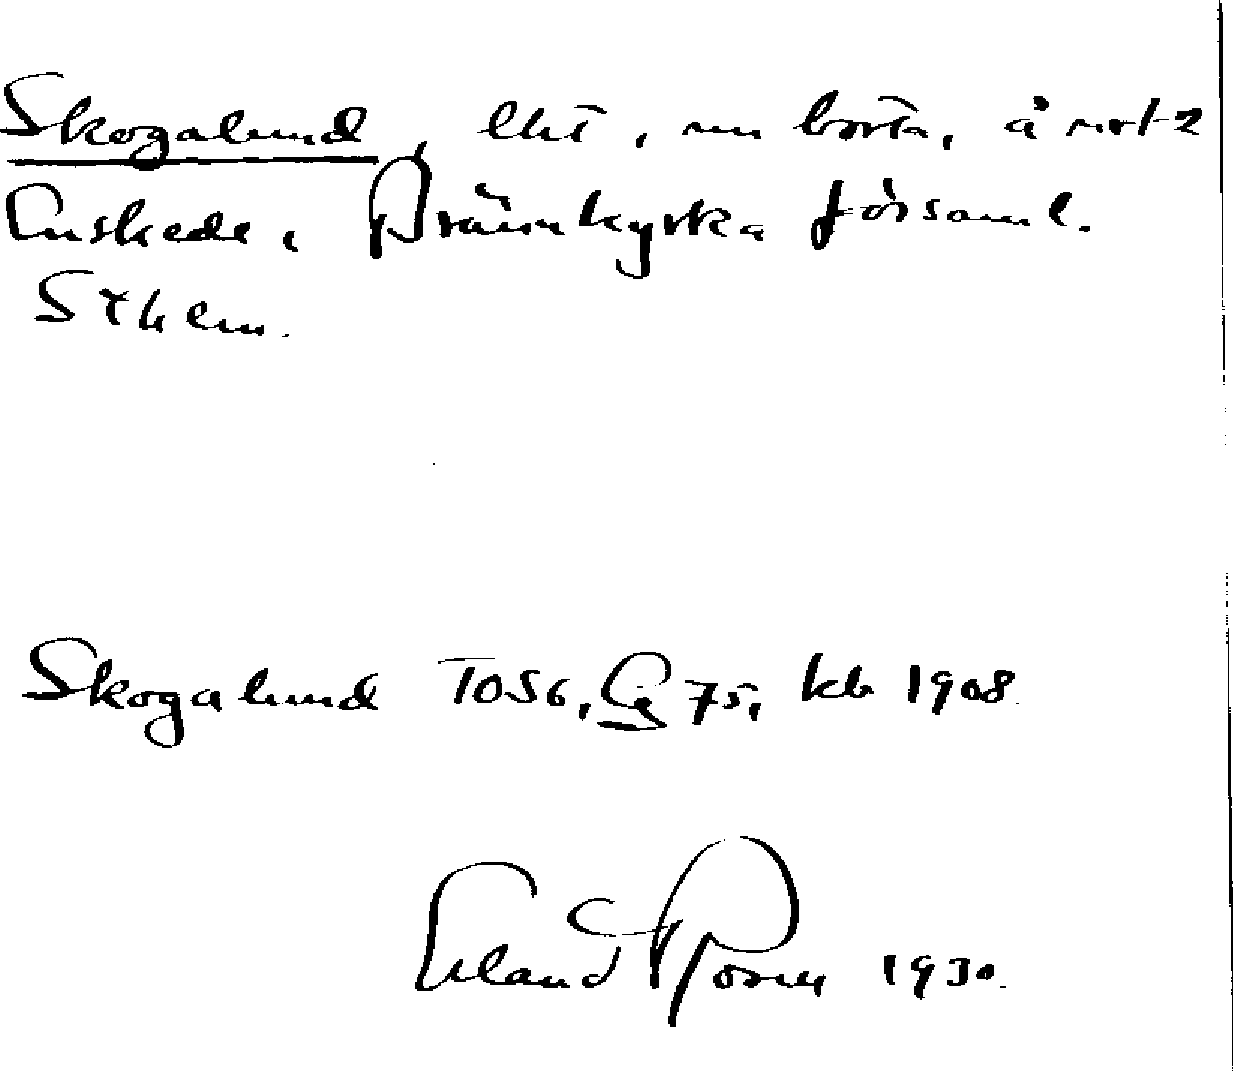 Skogalund, lht, nu borta, å mot 2
Enskede, Brännkyrka församl.
Sthlm.
Skogalund TOS6, Lg 75, kb 1908.
Erland Rosell 1930.